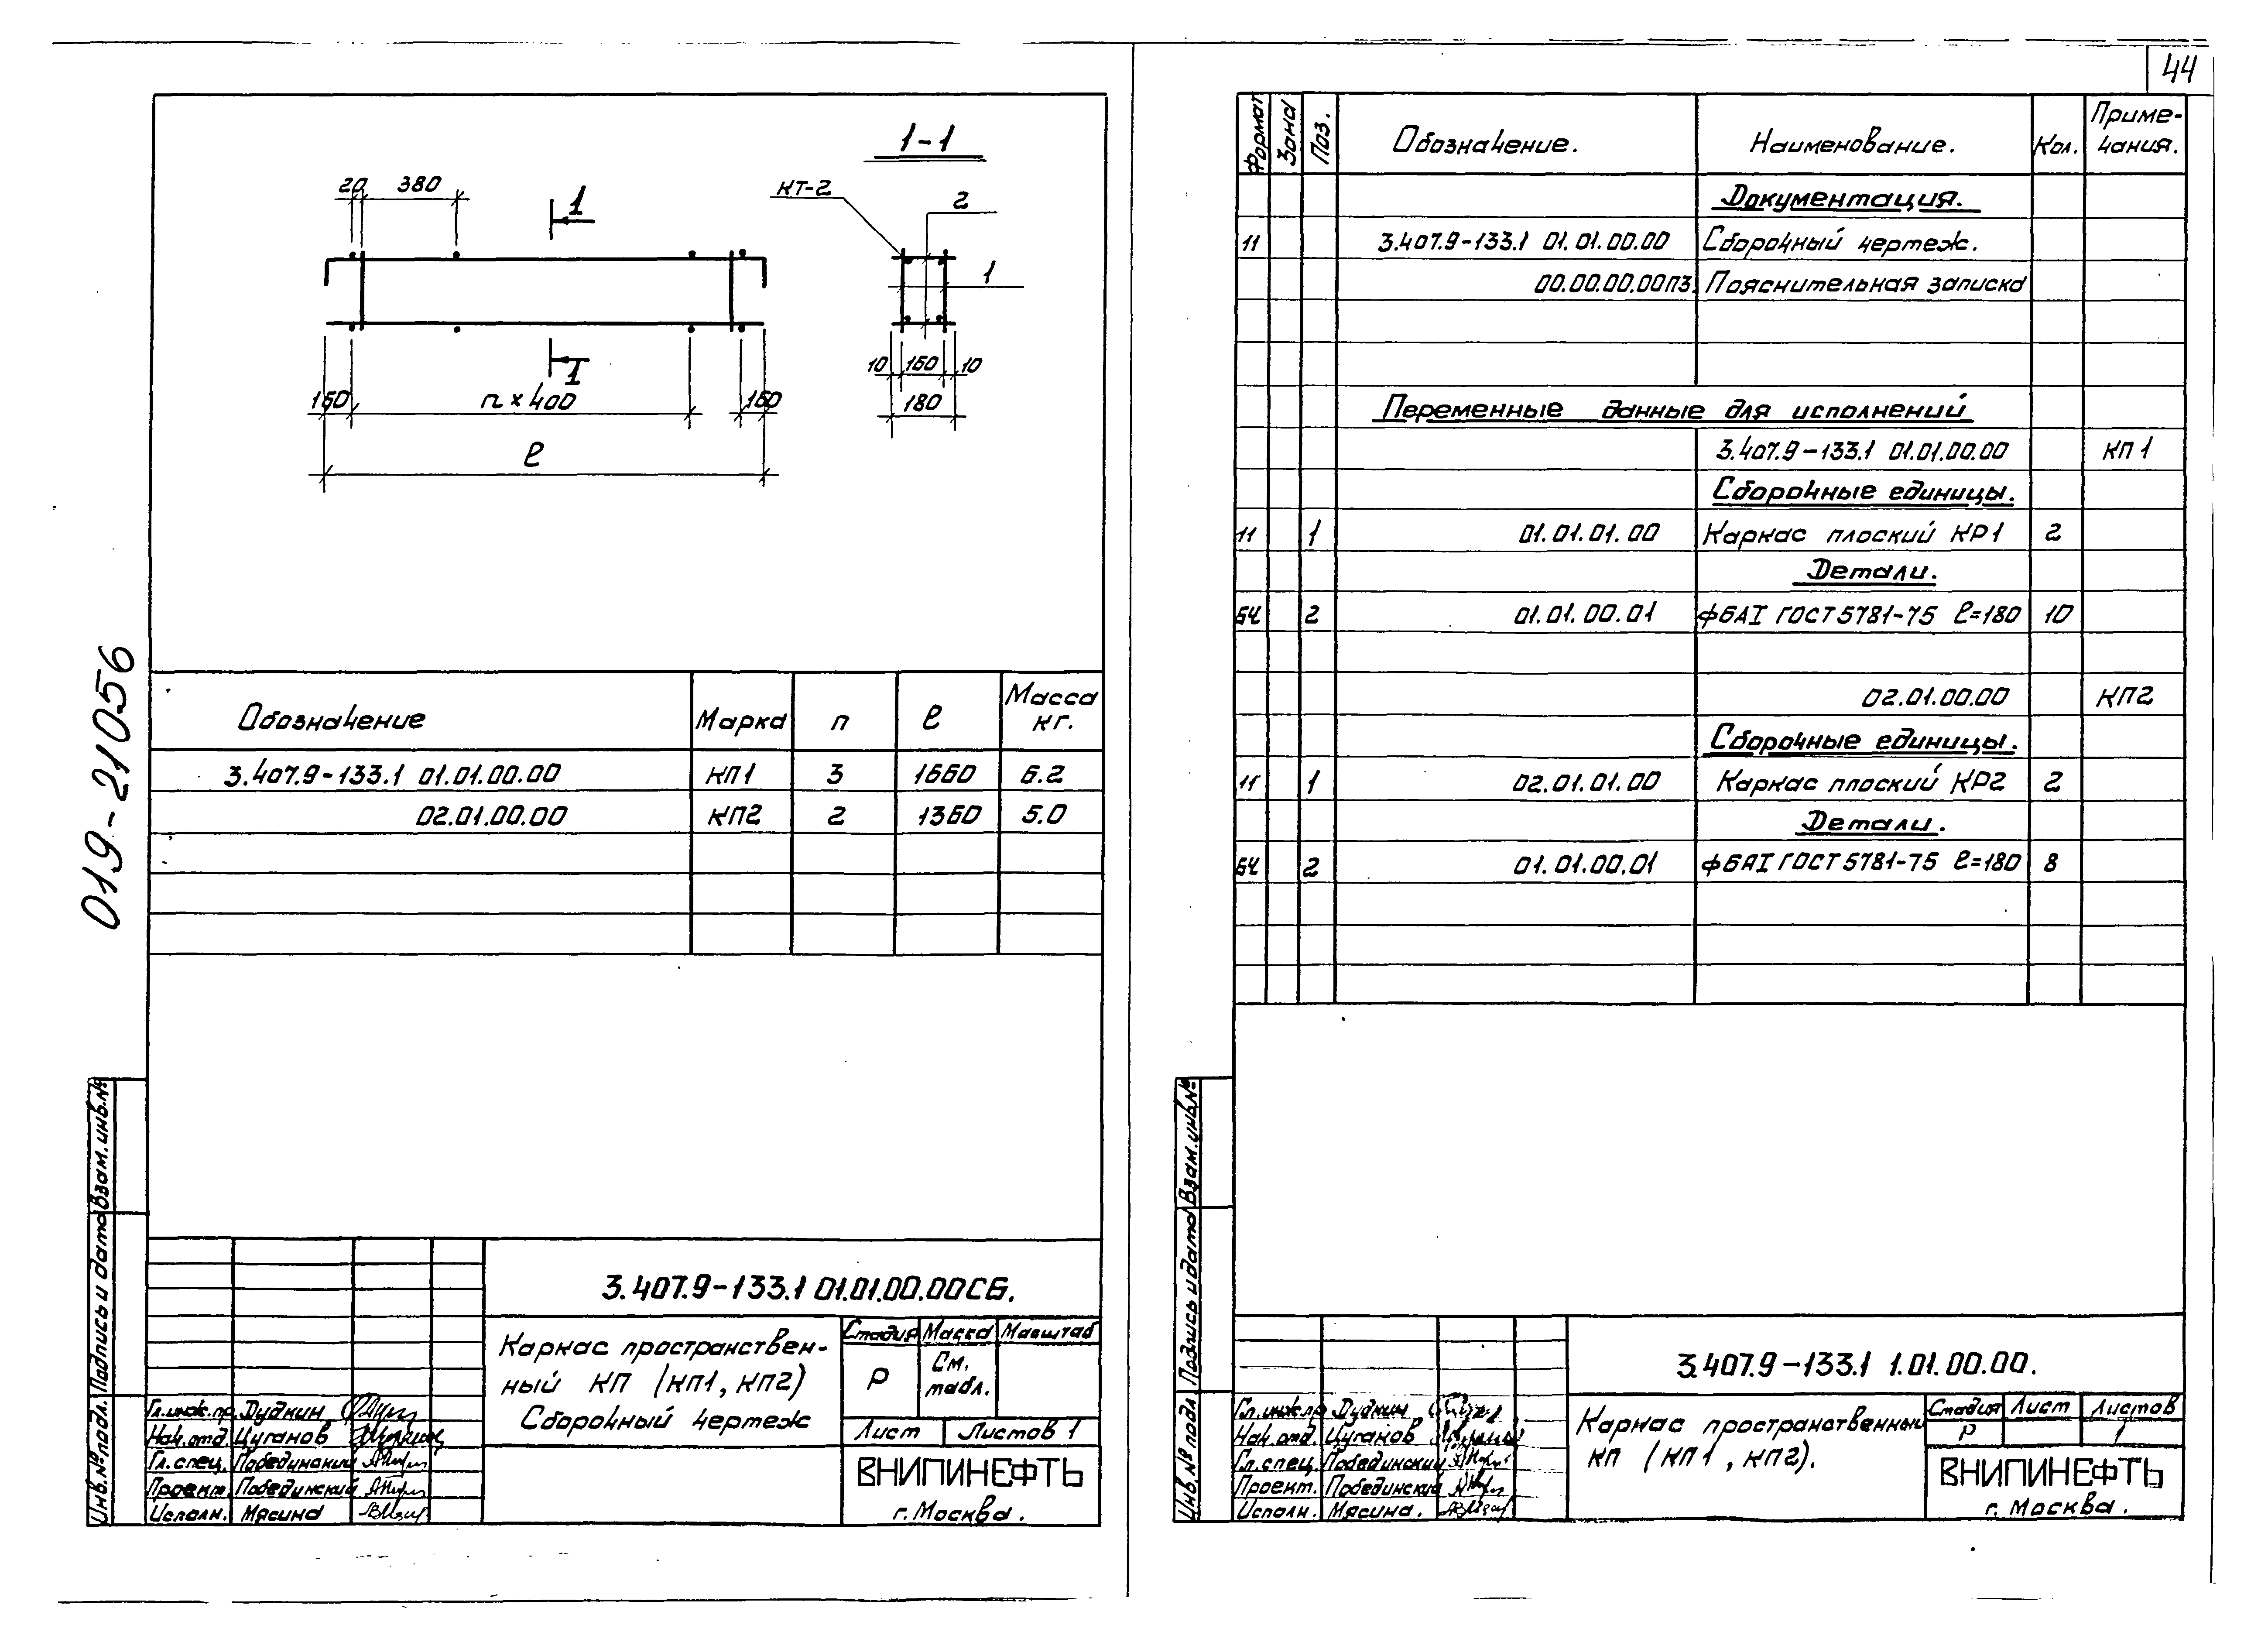 44
1-1
20 380
1
КТ-2
2
1
10 160 10
180
1
160 n × 400 160
ℓ
019-21056
Обозначение Марка n ℓ Масса кг.
3.407.9-133.1 01.01.00.00 КП1 3 1660 6.2
02.01.00.00 КП2 2 1360 5.0
Взам. инв. №
Подпись и дата
Инв. № подл.
3.407.9-133.1 01.01.00.00СБ.
Каркас пространствен-
ный КП (КП1, КП2)
Сборочный чертеж
Стадия Масса Масштаб
Р См. табл.
Лист Листов 1
ВНИПИНЕФТЬ
г. Москва.
Гл.инж.пр. Дудкин
Нач.отд. Цуганов
Гл.спец. Побединский
Проект. Побединский
Исполн. Мясина
Формат Зона Поз. Обозначение. Наименование. Кол. Приме-
чания.
Документация.
11 3.407.9-133.1 01.01.00.00 Сборочный чертеж.
00.00.00.00ПЗ. Пояснительная записка
Переменные данные для исполнений
3.407.9-133.1 01.01.00.00 КП1
Сборочные единицы.
11 1 01.01.01.00 Каркас плоский КР1 2
Детали.
БЧ 2 01.01.00.01 ф6АI ГОСТ 5781-75 ℓ=180 10
02.01.00.00 КП2
Сборочные единицы.
11 1 02.01.01.00 Каркас плоский КР2 2
Детали.
БЧ 2 01.01.00.01 ф6АI ГОСТ 5781-75 ℓ=180 8
Взам. инв. №
Подпись и дата
Инв. № подл
3.407.9-133.1 1.01.00.00.
Каркас пространственный
КП (КП1, КП2).
Стадия Лист Листов
Р 1
ВНИПИНЕФТЬ
г. Москва.
Гл.инж.пр Дудкин
Нач.отд. Цуганов
Гл.спец. Побединский
Проект. Побединский
Исполн. Мясина.